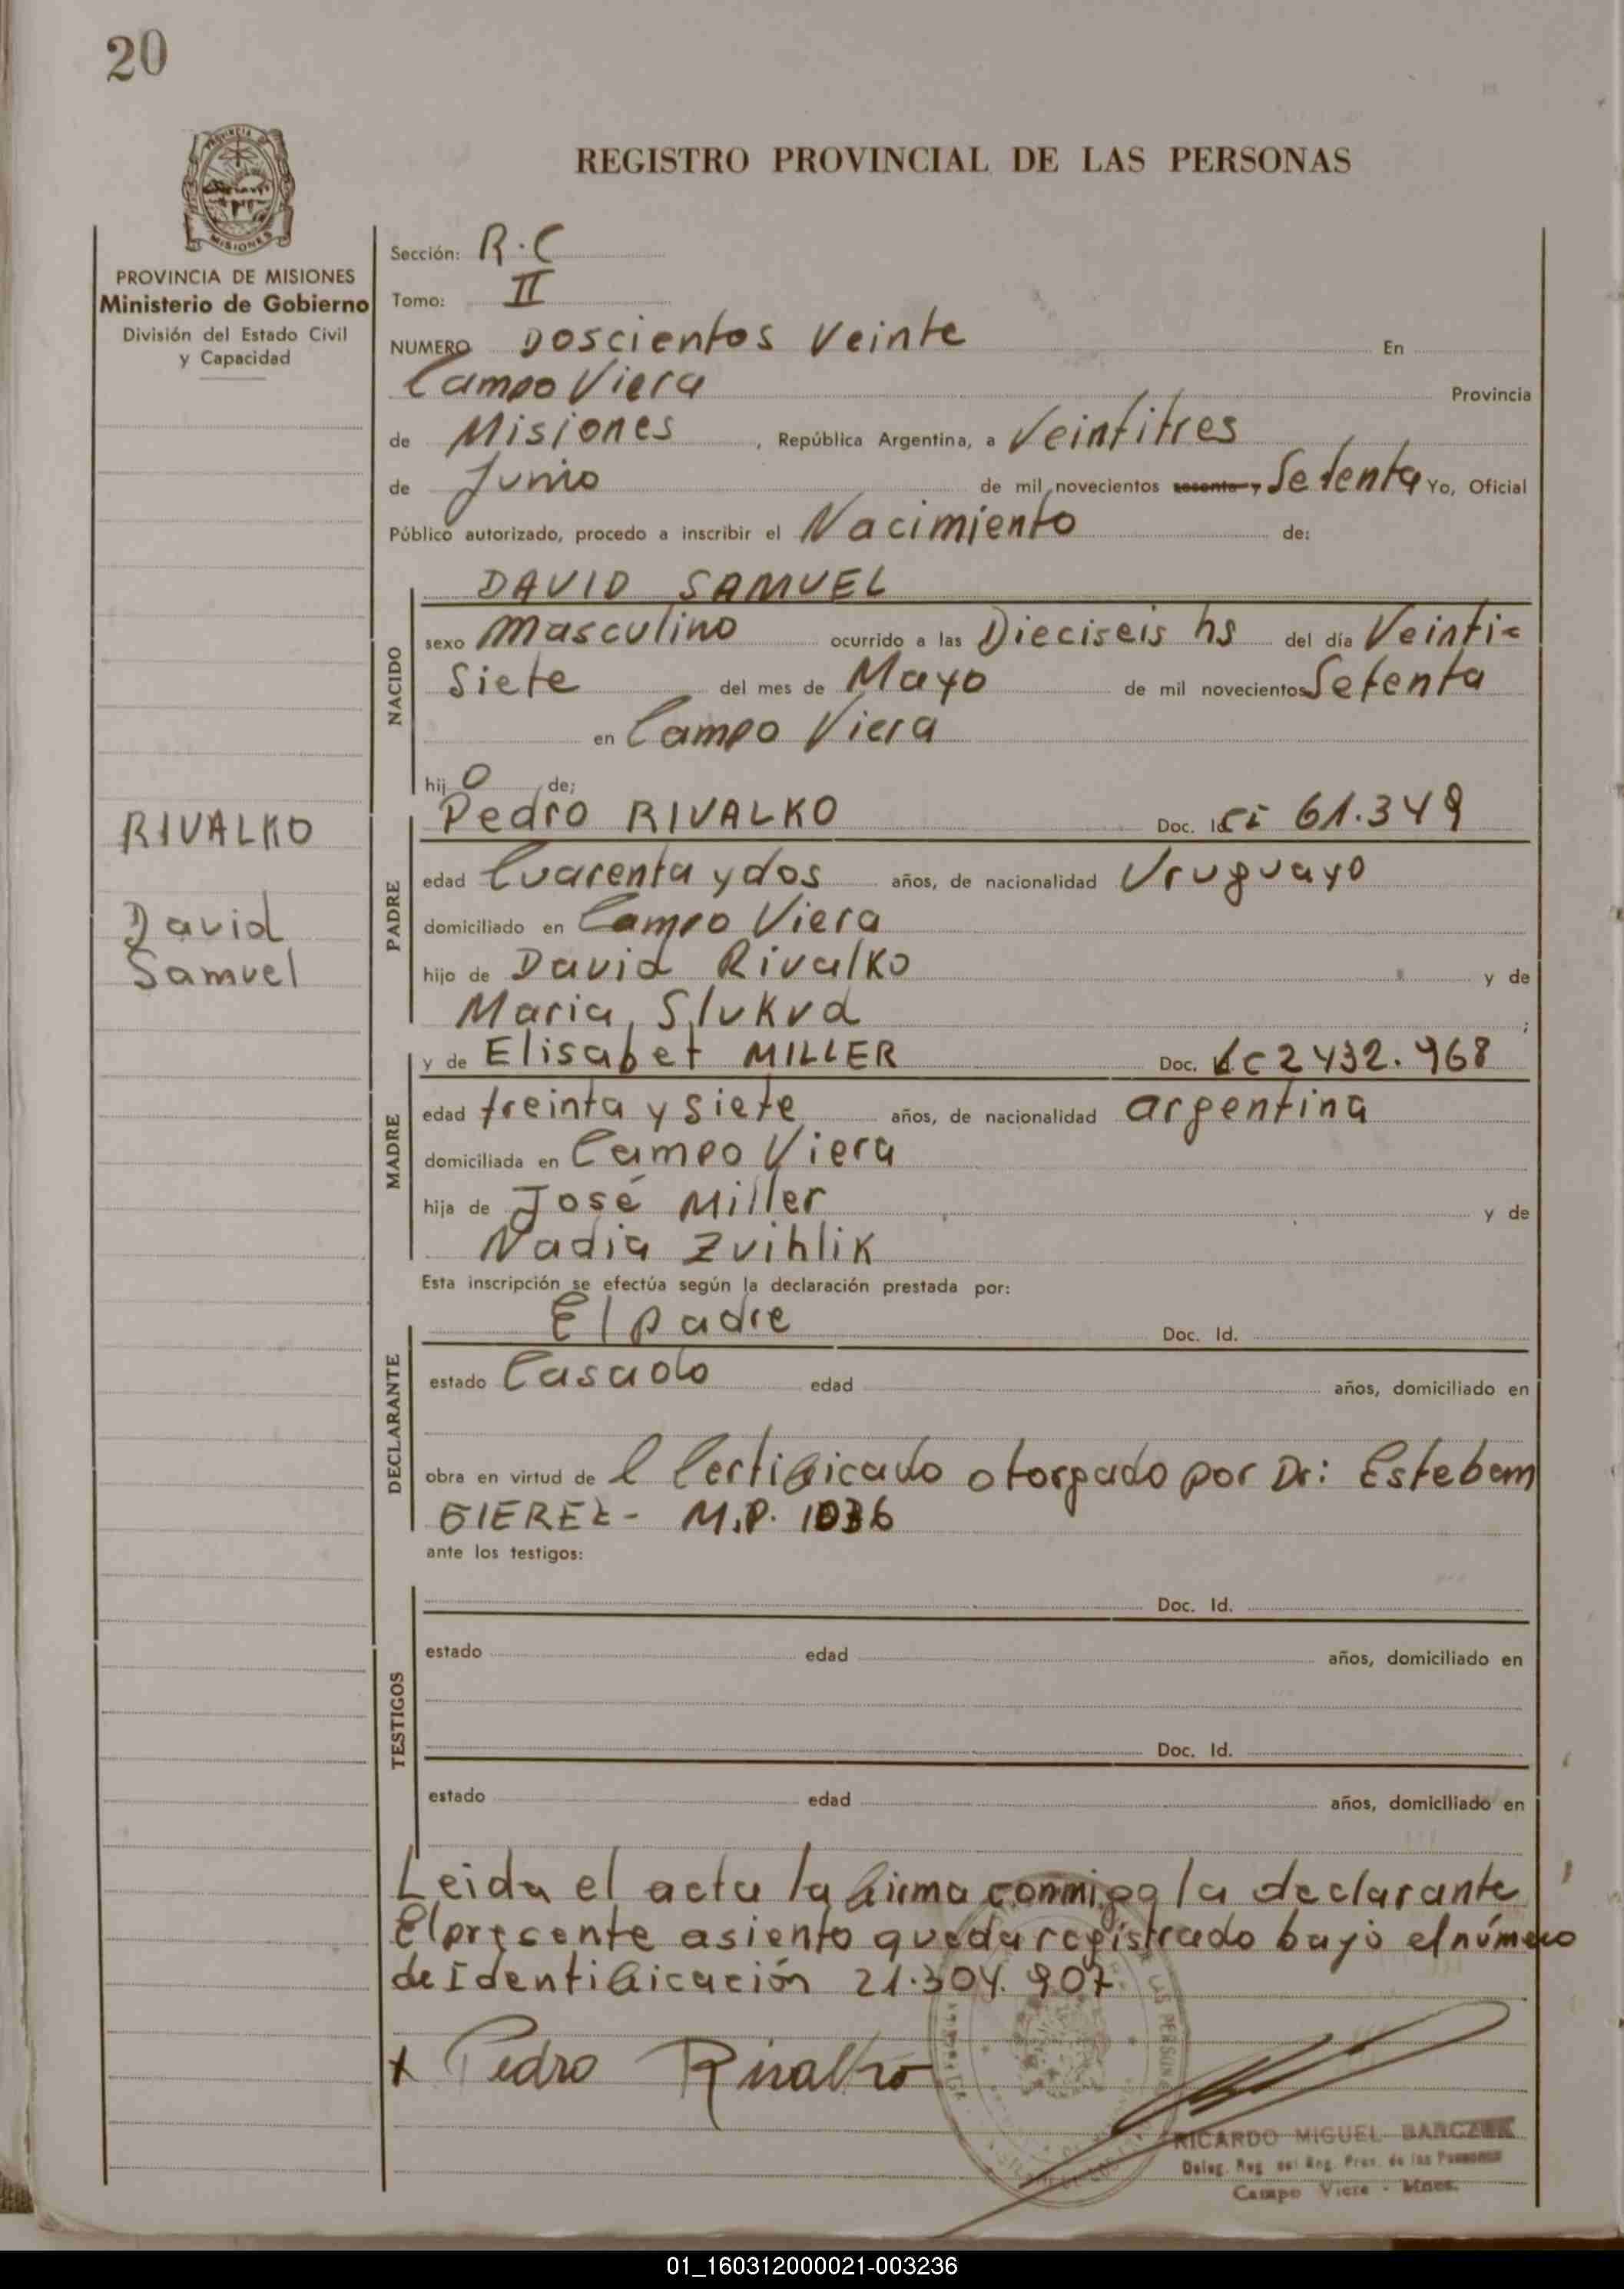 20
PROVINCIA DE MISIONES
REGISTRO PROVINCIAL DE LAS PERSONAS
PROVINCIA DE MISIONES
Ministerio de Gobierno
División del Estado Civil
y Capacidad
Sección: R.C
Tomo: II
NUMERO Doscientos Veinte En
Campo Viera Provincia
de Misiones, República Argentina, a Veintitres
de Junio de mil novecientos sesenta y Setenta Yo, Oficial
Público autorizado, procedo a inscribir el Nacimiento de:
NACIDO
DAVID SAMUEL
sexo Masculino ocurrido a las Dieciseis hs del día Veinti-
Siete del mes de Mayo de mil novecientos Setenta
en Campo Viera
hijo de;
RIVALKO
David
Samuel
PADRE
Pedro RIVALKO Doc. Id. Ci 61.349
edad Cuarenta y dos años, de nacionalidad Uruguayo
domiciliado en Campo Viera
hijo de David Rivalko y de
Maria Slukvd ;
MADRE
y de Elisabet MILLER Doc. LC 2432.968
edad treinta y siete años, de nacionalidad argentina
domiciliada en Campo Viera
hija de José Miller y de
Nadia Zvihlik
Esta inscripción se efectúa según la declaración prestada por:
DECLARANTE
El padre Doc. Id.
estado Casado edad años, domiciliado en
obra en virtud de l Certificado otorgado por Dr: Esteban
GIEREZ- M.P. 1036
ante los testigos:
TESTIGOS
Doc. Id.
estado edad años, domiciliado en
Doc. Id.
estado edad años, domiciliado en
Leida el acta la firma conmigo la declarante
El presente asiento queda registrado bajo el número
de Identificación 21.304.907
x Pedro Rivalko
RICARDO MIGUEL BARCZUK
Deleg. Reg. del Reg. Prov. de las Personas
Campo Viera - Mnes.
01_160312000021-003236